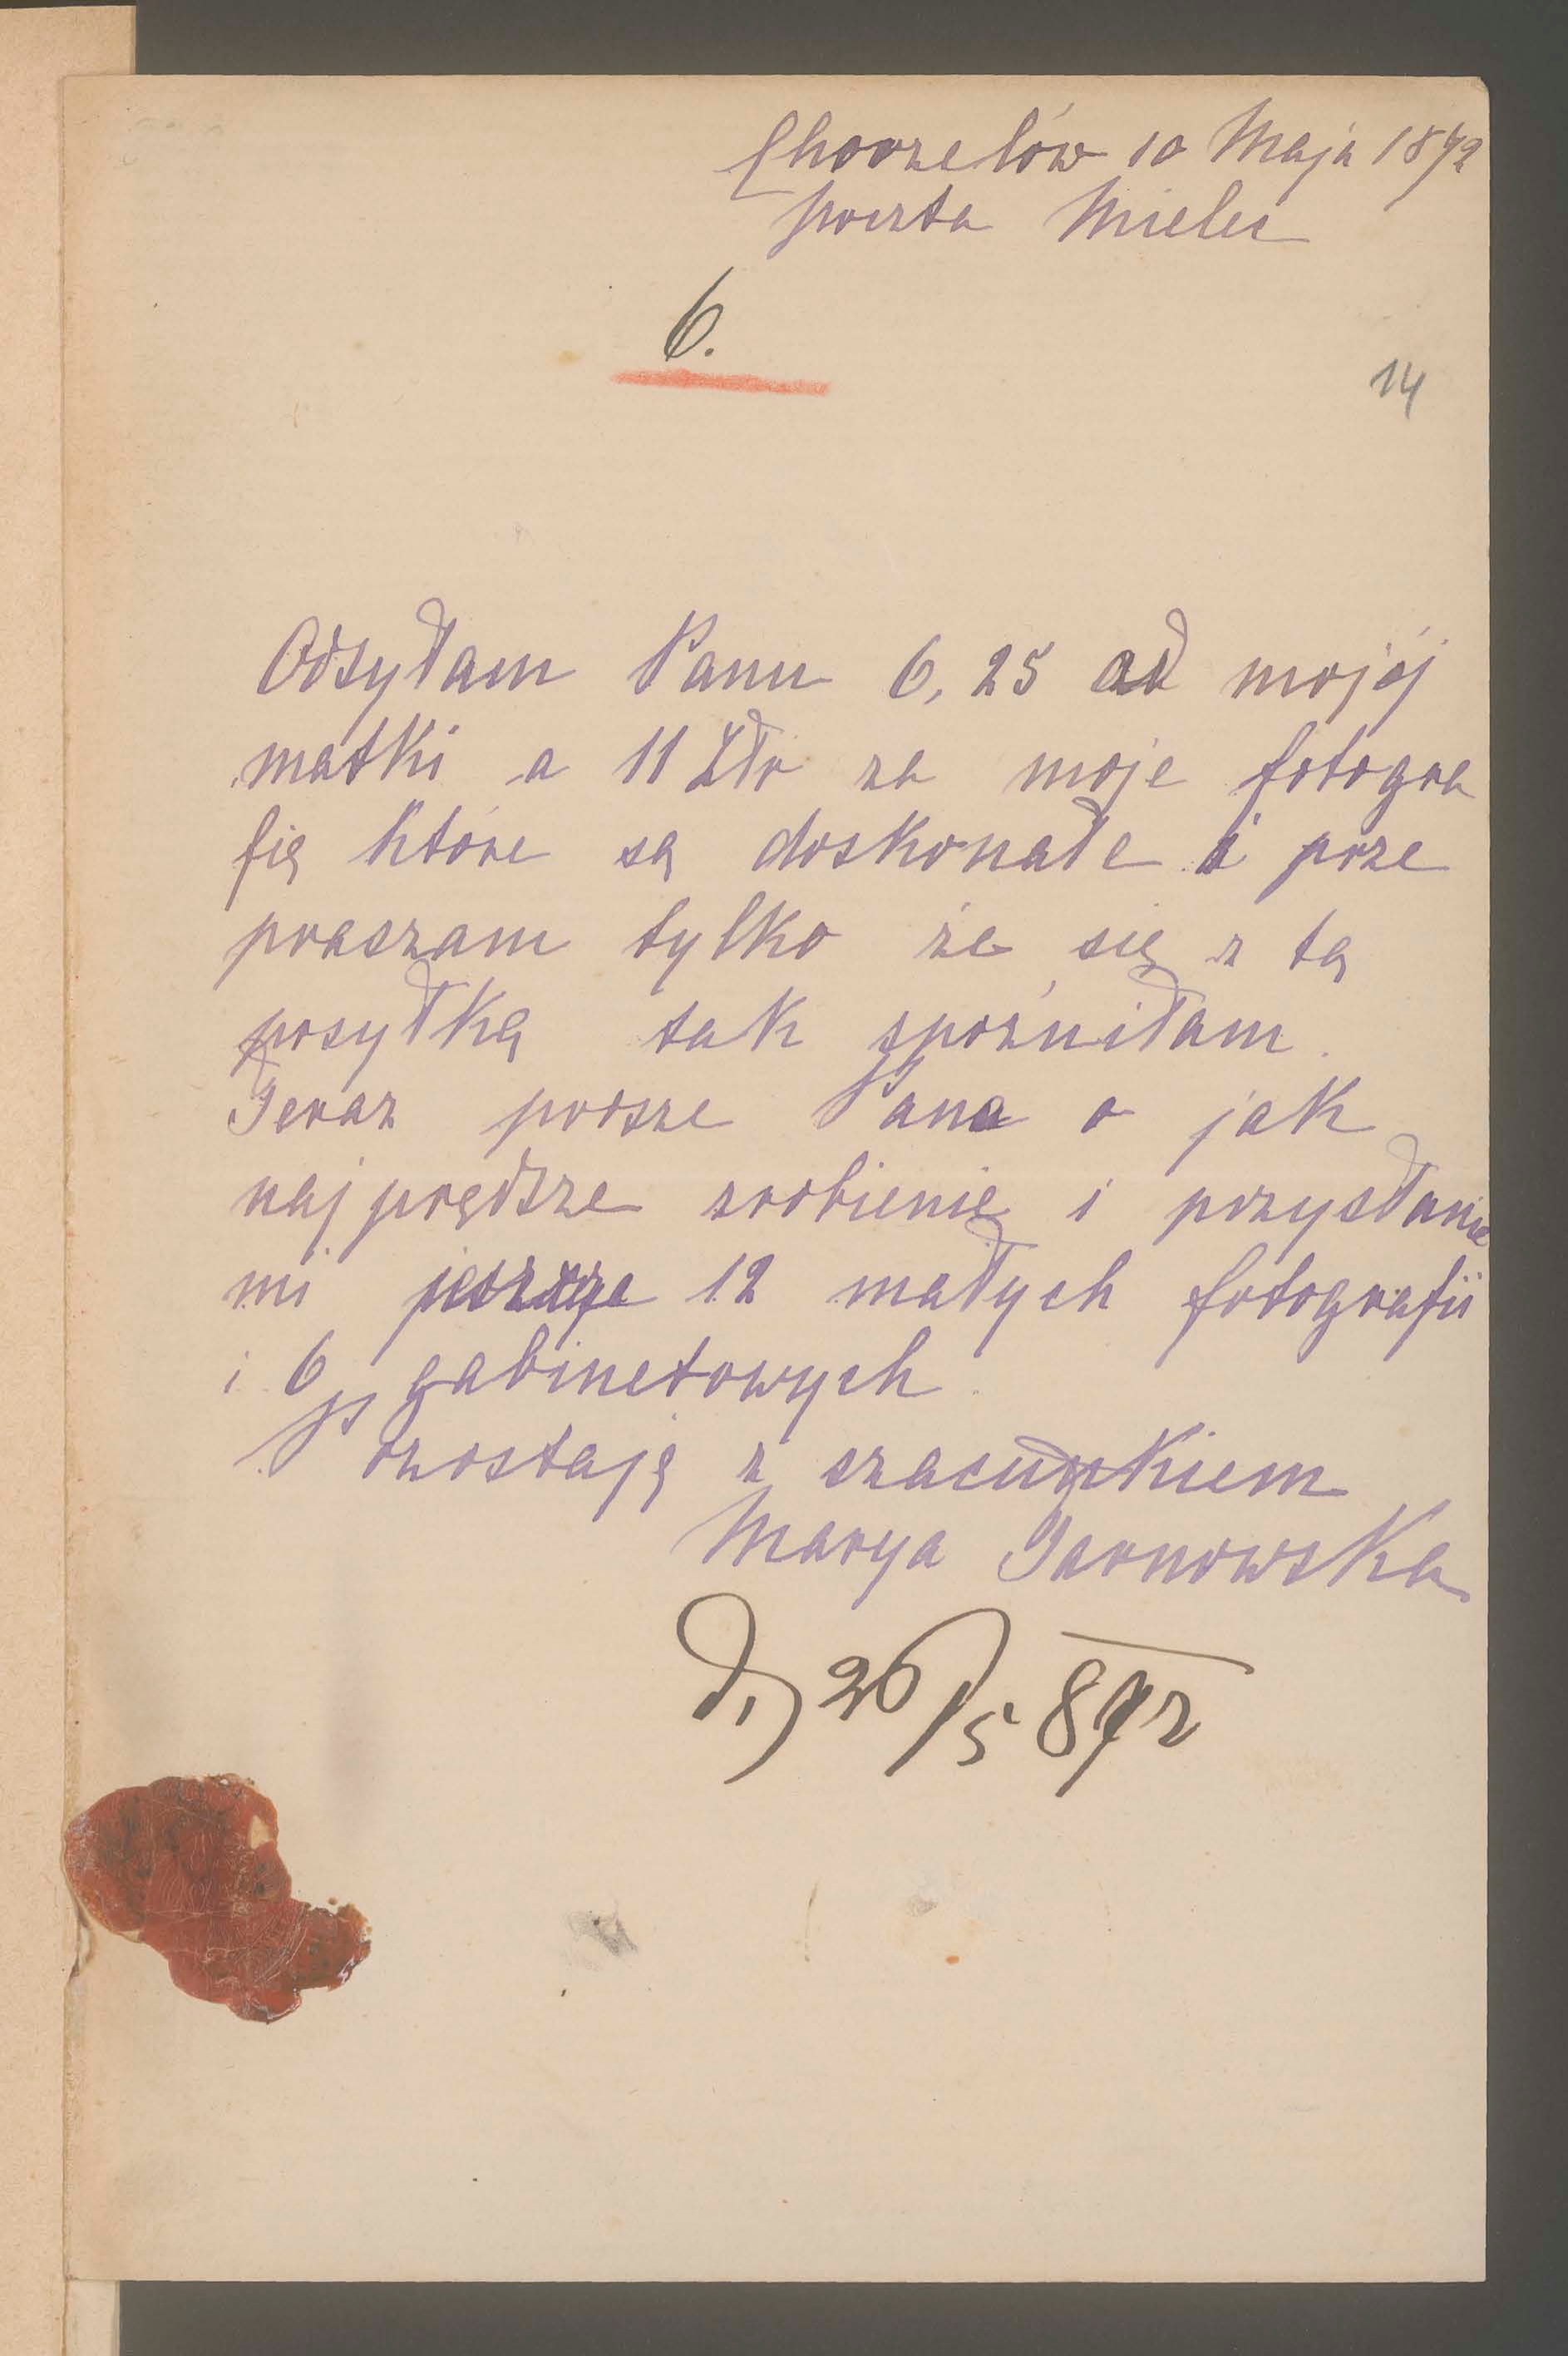 Chorzelów 10 Maja 1892
poczta Mielec
6.
14
Odsyłam Panu 6,25 od mojéj
matki a 11 Złr za moje fotogra
fię które są doskonałe i prze
praszam tylko że się z tą
posyłką tak spóźniłam.
Teraz prosze Pana o jak
najprędsze zrobienie i przysłanie
mi jeszcze 12 małych fotografii
i 6 gabinetowych.
Pozostaję z szacunkiem
Marya Tarnowska
26/5 892